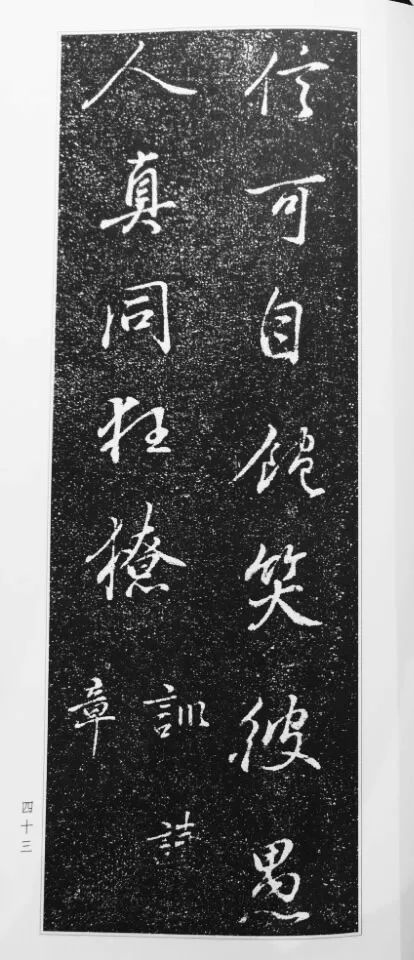 信可自飽笑彼愚
人真同狂獠
訓詰
章
四十三